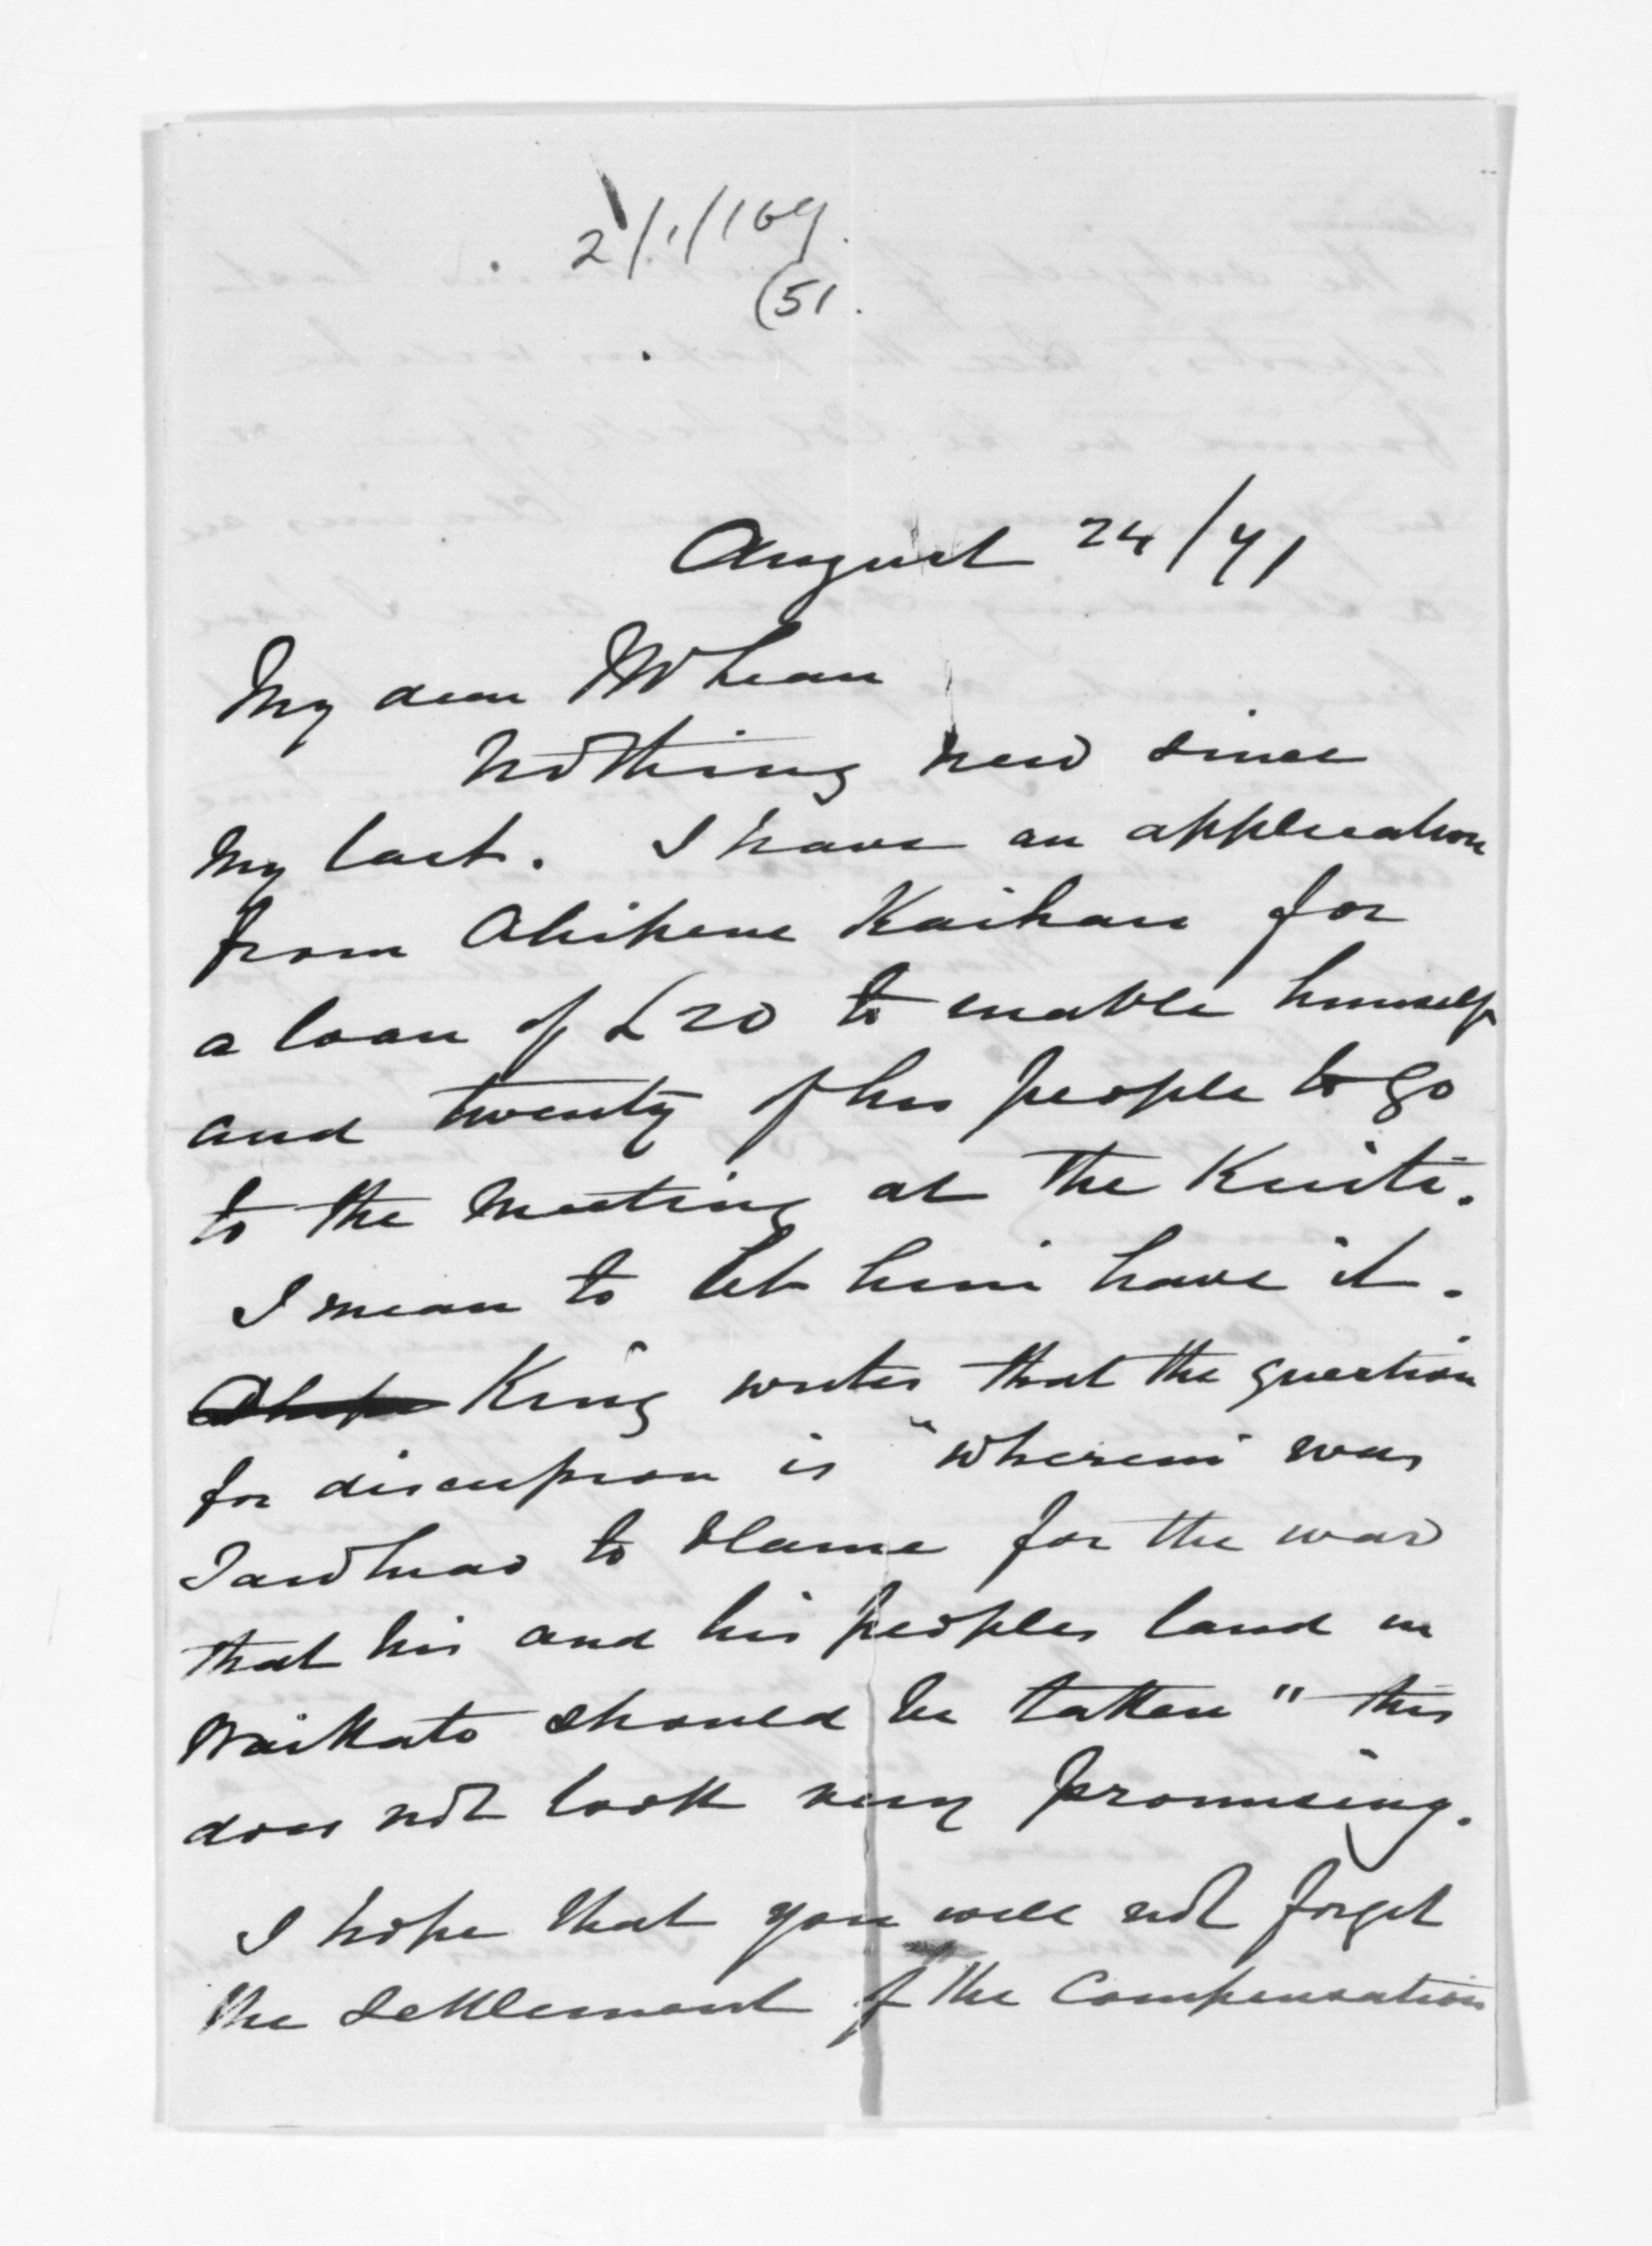 2/1/169.
(51.
August 24/71
My dear McLean
Nothing new since
my last. I have an application
from Ahipene Kaihau for
a loan of £20 to enable himself
and twenty of his people to go
to the meeting at the Kuiti.
I mean to let him have it.
King writes that the question
for discussion is "wherein was
Tawhiao to blame for the war
that his and his peoples land in
Waikato should be taken" this
does not look very promising.
I hope that you will not forget
the settlement of the Compensation